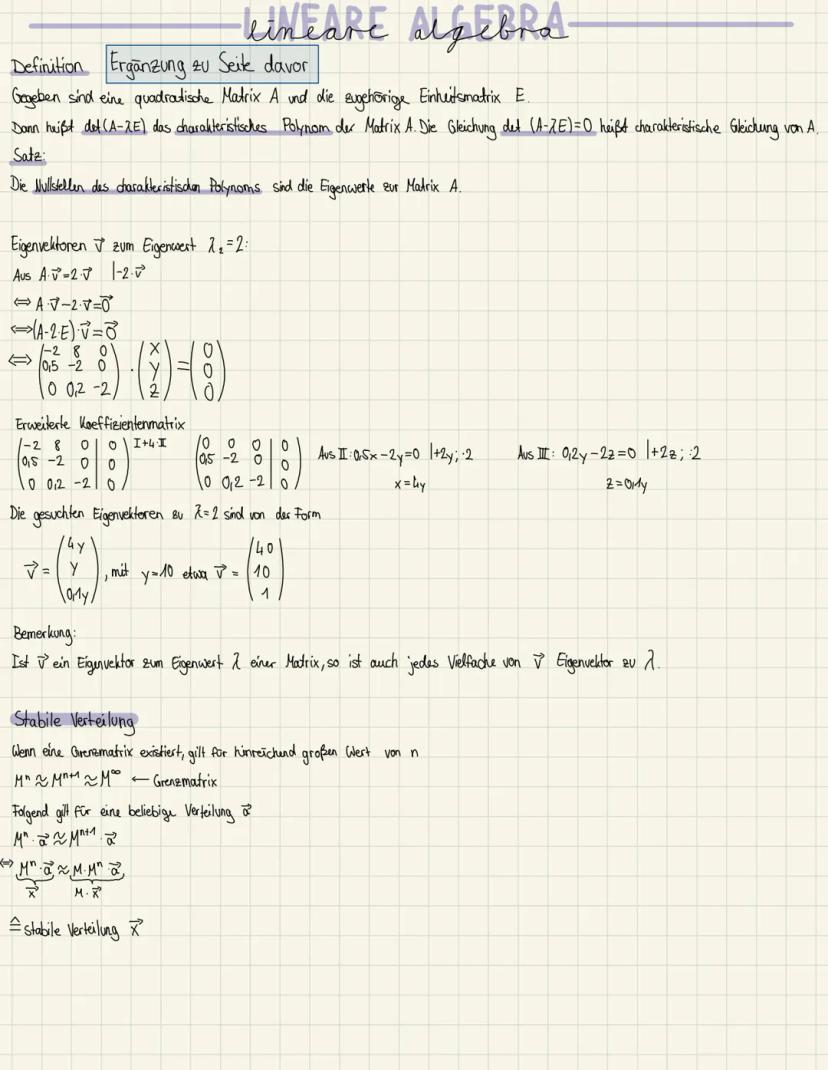 LINEARE ALGEBRA
lineare algebra
Definition Ergänzung zu Seite davor
Gegeben sind eine quadratische Matrix A und die zugehörige Einheitsmatrix E.
Dann heißt det(A-λE) das charakteristisches Polynom der Matrix A. Die Gleichung det (A-λE)=0 heißt charakteristische Gleichung von A.
Satz:
Die Nullstellen des charakteristischen Polynoms sind die Eigenwerte zur Matrix A.
Eigenvektoren v⃗ zum Eigenwert λ₂=2:
Aus A·v⃗=2·v⃗ |-2·v⃗
⇔ A·v⃗-2·v⃗=0⃗
⇔(A-2·E)·v⃗=0⃗
⇔ (-2 8 0; 0,5 -2 0; 0 0,2 -2) · (x; y; z) = (0; 0; 0)
Erweiterte Koeffizientenmatrix
(-2 8 0 | 0; 0,5 -2 0 | 0; 0 0,2 -2 | 0) I+4·II (0 0 0 | 0; 0,5 -2 0 | 0; 0 0,2 -2 | 0) Aus II: 0,5x-2y=0 |+2y; ·2 Aus III: 0,2y-2z=0 |+2z; :2
x=4y z=0,1y
Die gesuchten Eigenvektoren zu λ=2 sind von der Form
v⃗ = (4y; y; 0,1y), mit y=10 etwa v⃗ = (40; 10; 1)
Bemerkung:
Ist v⃗ ein Eigenvektor zum Eigenwert λ einer Matrix, so ist auch jedes Vielfache von v⃗ Eigenvektor zu λ.
Stabile Verteilung
Wenn eine Grenzmatrix existiert, gilt für hinreichend großen Wert von n
Mⁿ≈Mⁿ⁺¹≈M^∞ ← Grenzmatrix
Folgend gilt für eine beliebige Verteilung a⃗
Mⁿ·a⃗≈Mⁿ⁺¹·a⃗
⇔ Mⁿ·a⃗≈M·Mⁿ·a⃗
x⃗ M·x⃗
≙ stabile Verteilung x⃗